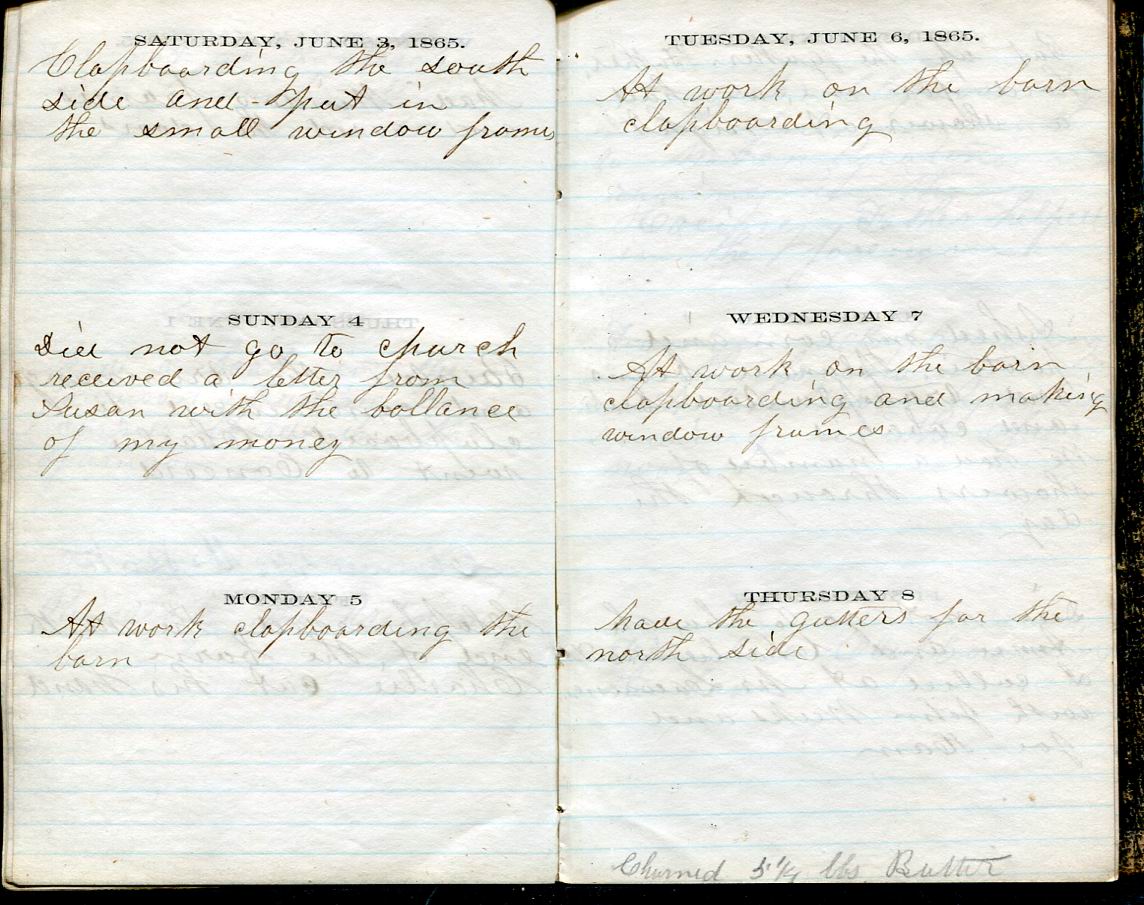 SATURDAY, JUNE 3, 1865.
Clapboarding the south
side and put in
the small window frames
SUNDAY 4
Did not go to church
received a letter from
Susan with the ballance
of my money
MONDAY 5
At work clapboarding the
barn
TUESDAY, JUNE 6, 1865.
At work on the barn
clapboarding
WEDNESDAY 7
At work on the barn
clapboarding and making
window frames
THURSDAY 8
Made the gutters for the
north side
Churned 5 1/4 lbs Butter